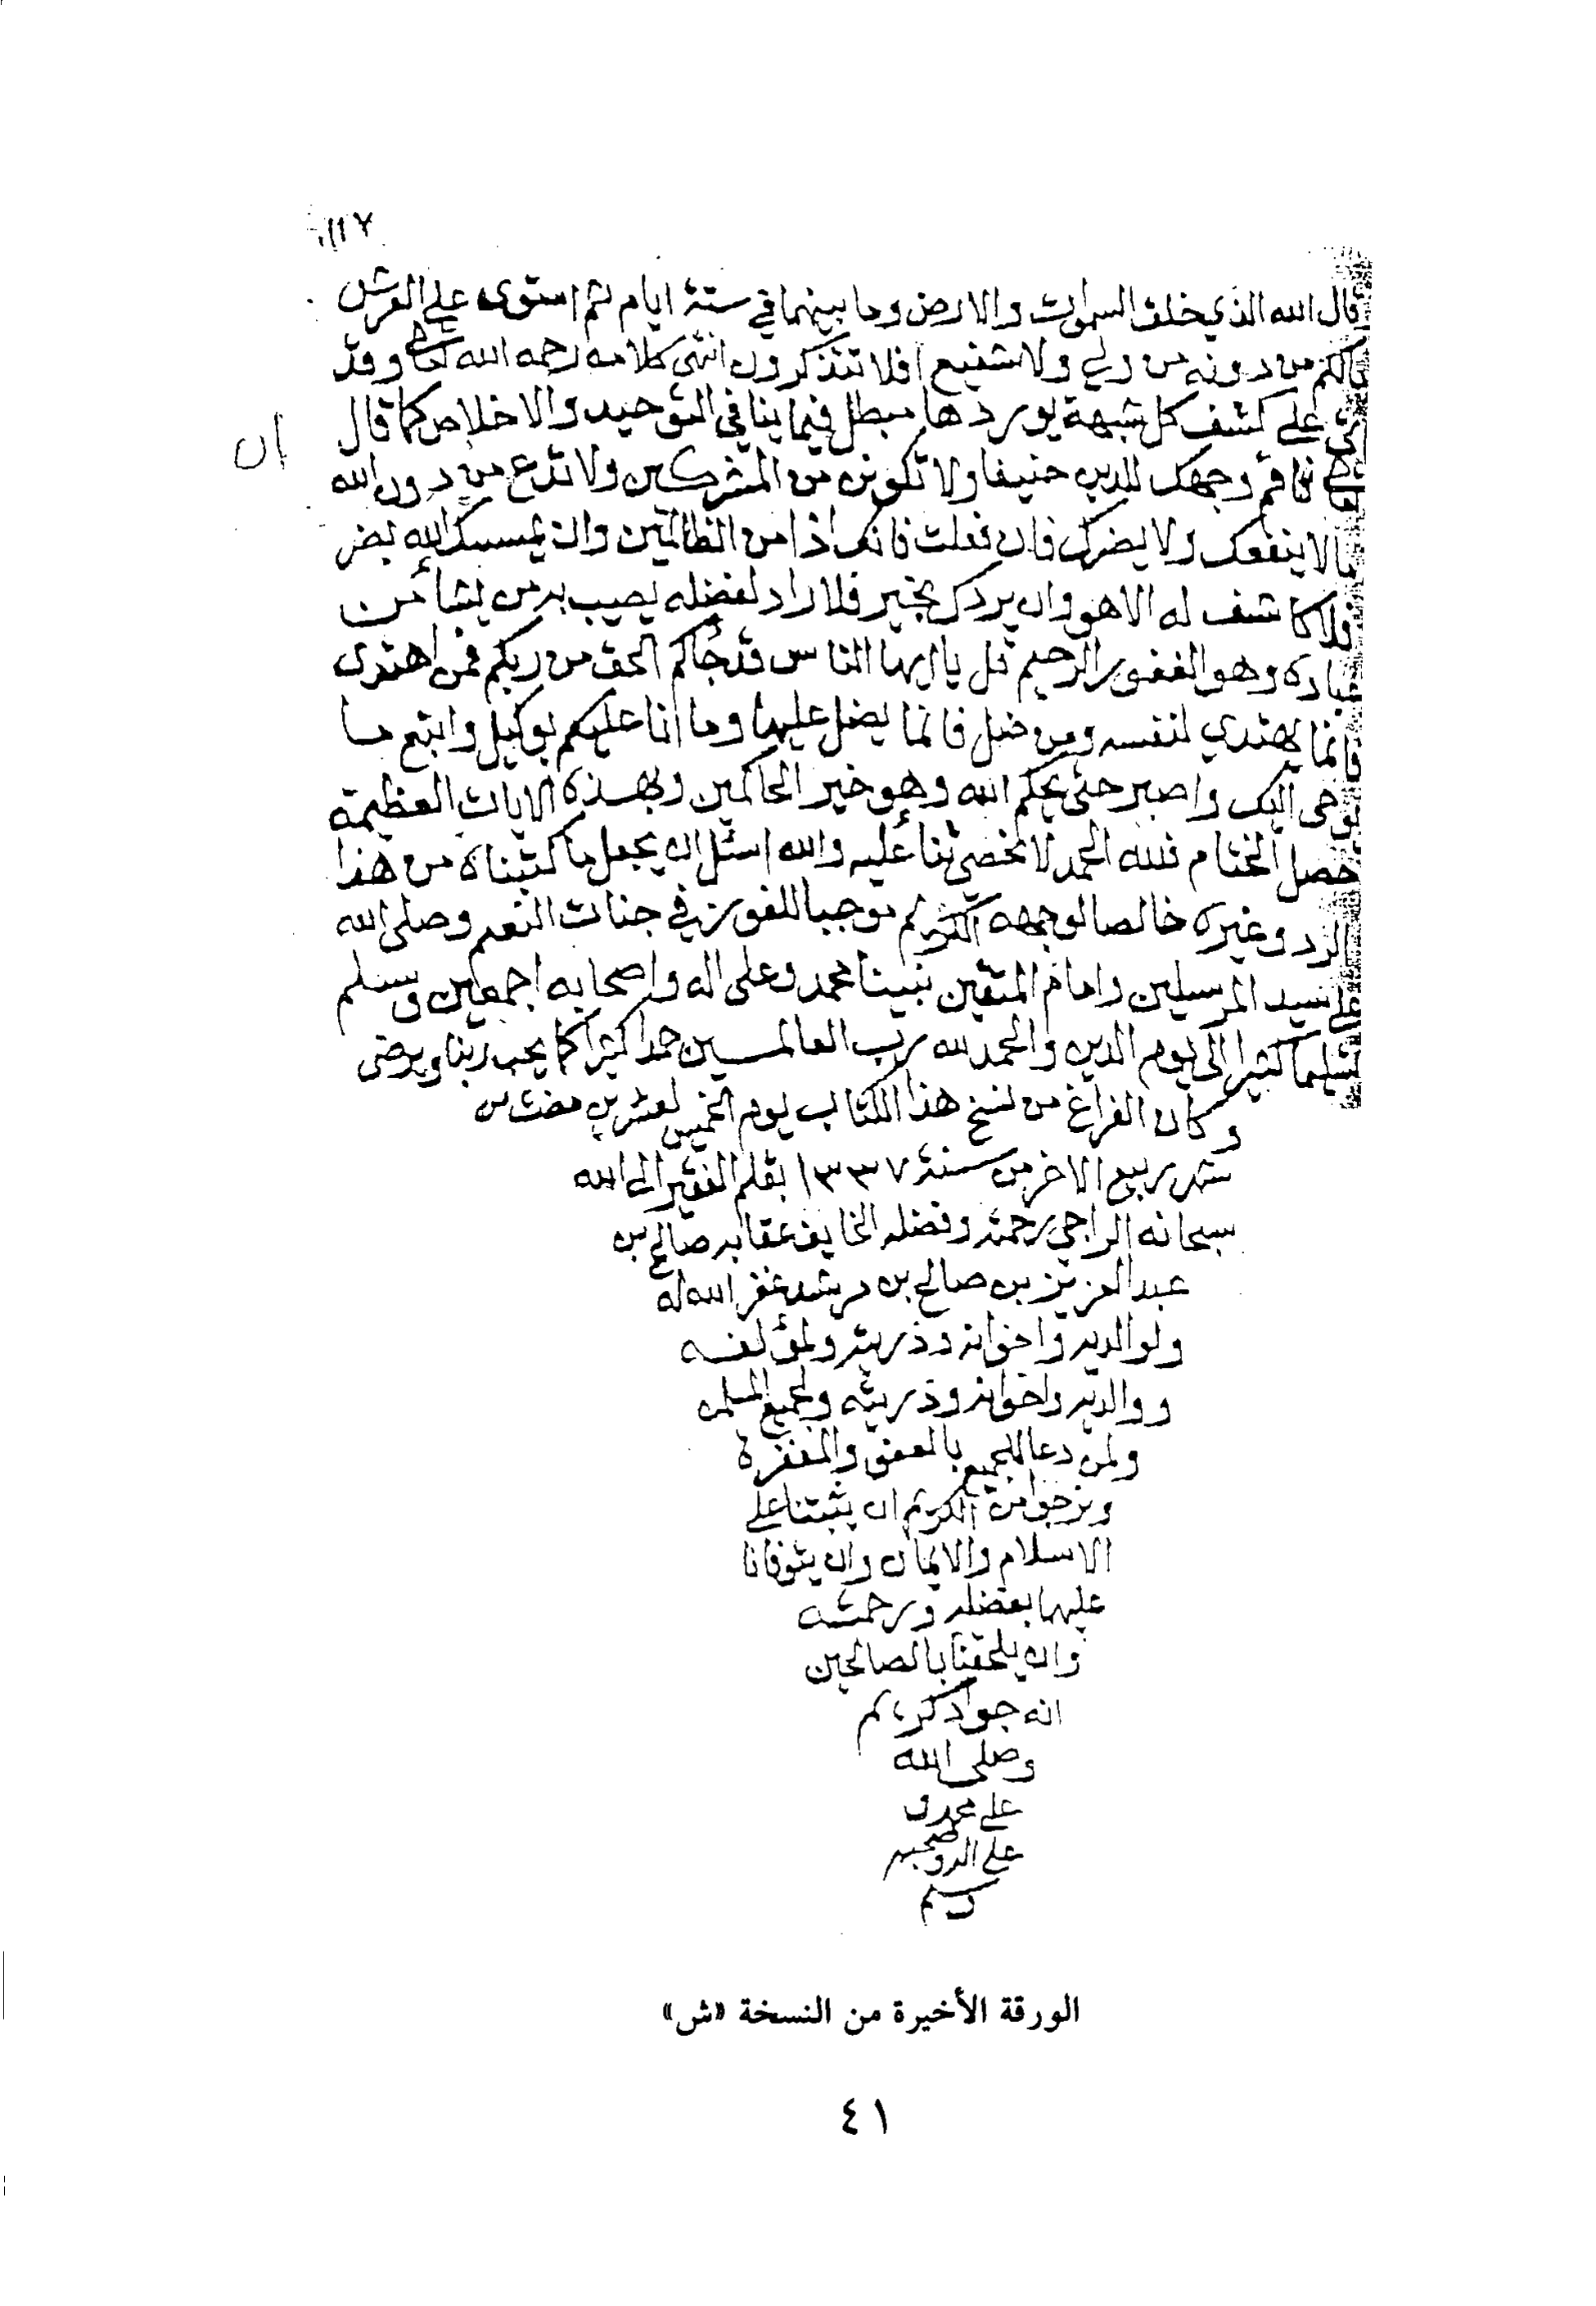 ١١٢٧
قال الله الذي خلق السموات والارض وما بينهما في ستة ايام ثم استوى على العرش
مالكم من دونه من ولي ولا شفيع افلا تتذكرون انتهى كلامه رحمه الله تعالى وقد
على كشف كل شبهة يوردها مبطل فيما ينافي التوحيد والاخلاص كما قال
ان
تعالى فاقم وجهك للدين حنيفا ولا تكونن من المشركين ولا تدع من دون الله
مالا ينفعك ولا يضرك فان فعلت فانك اذا من الظالمين وان يمسسك الله بضر
فلا كاشف له الا هو وان يردك بخير فلا راد لفضله يصيب به من يشأ من
عباده وهو الغفور الرحيم قل يا ايها الناس قد جأكم الحق من ربكم فمن اهتدى
فانما يهتدي لنفسه ومن ضل فانما يضل عليها وما انا عليكم بوكيل واتبع ما
يوحى اليك واصبر حتى يحكم الله وهو خير الحاكمين وبهذه الايات العظيمة
حصل الختام فلله الحمد لا نحصي ثنأ عليه والله اسئل ان يجعل ما كتبناه من هذا
الرد وغيره خالصا لوجهه الكريم موجبا للفوز في جنات النعيم وصلى الله
على سيد المرسلين وامام المتقين نبينا محمد وعلى اله واصحابه اجمعين وسلم
تسليما كثيرا الى يوم الدين والحمد لله رب العالمين حمدا كثيرا كما يحب ربنا ويرضى
وكان الفراغ من نسخ هذا الكتاب يوم الخميس لعشرين مضت من
شهر ربيع الاخر من سنة ١٣٣٧ بقلم الفقير الى الله
سبحانه الراجي رحمته وفضله الخايف عقابه صالح بن
عبد العزيز بن صالح بن مرشد غفر الله له
ولوالديه واخوانه وذريته ولمؤلفه
ووالديه واخوانه وذريته ولجميع المسلمين
ولمن دعا للجميع بالعفو والمغفرة
ونرجوا من الكريم ان يثبتنا على
الاسلام والايمان وان يتوفانا
عليها بفضله ورحمته
وان يلحقنا بالصالحين
انه جواد كريم
وصلى الله
على محمد و
على اله وصحبه
وسلم
الورقة الأخيرة من النسخة «ش»
٤١